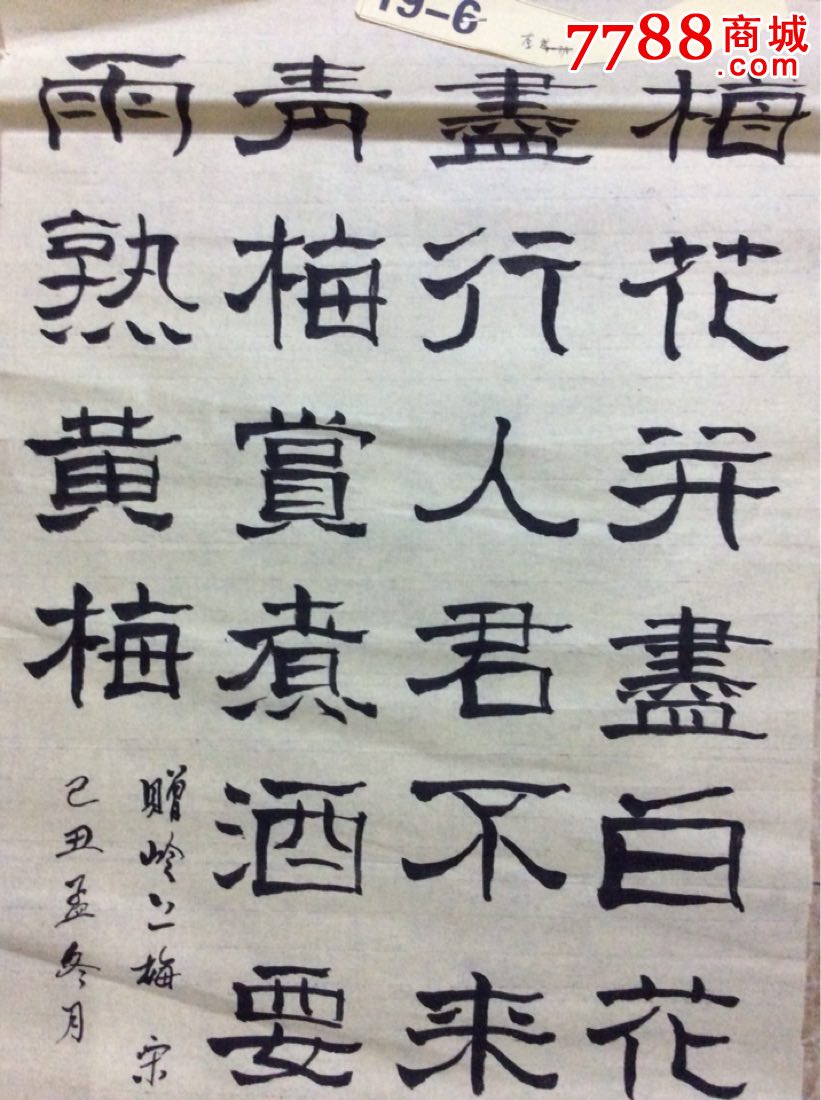 19-6
7788商城
.com
梅花并盡白花
盡行人君不来
青梅賞煮酒要
雨熟黄梅
贈岭上梅 宋
己丑孟冬月